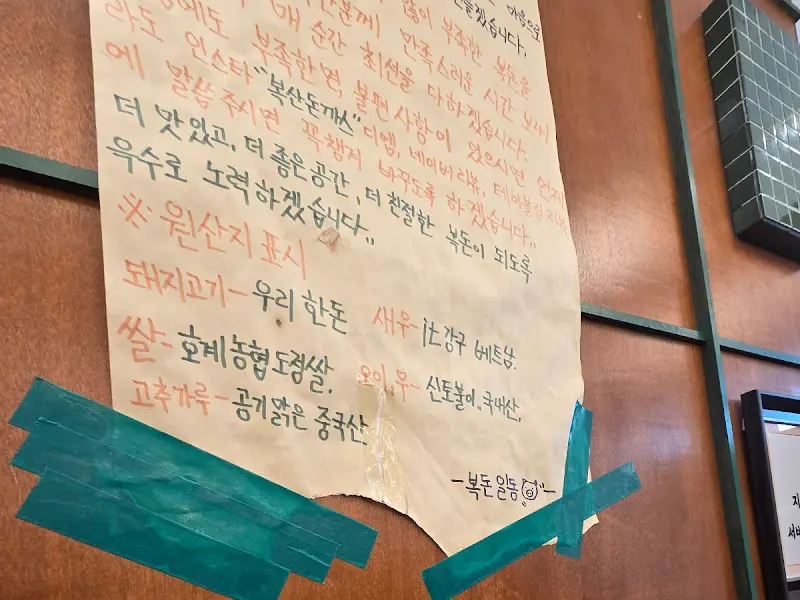 마음으로
만들겠습니다.
많이 부족한 복돈을
분께 만족스러운 시간 보내
매 순간 최선을 다하겠습니다.
라도 부족한면, 불편사항이 있으시면 언제
인스타 "복산돈까스" 디엠, 네이버리뷰, 테이블링 리뷰
에 말씀주시면 꼭 챙겨 바꾸도록 하겠습니다."
더 맛있고, 더 좋은 공간, 더 친절한 복돈이 되도록
육수로 노력하겠습니다"
※ 원산지 표시
돼지고기 - 우리 한돈
새우 - 강구 베트남.
쌀 - 호계농협 도정쌀.
오이,무 - 신토불이.. 국내산,
고추가루 - 공기맑은 중국산.
- 복돈 일동 -
지
서비